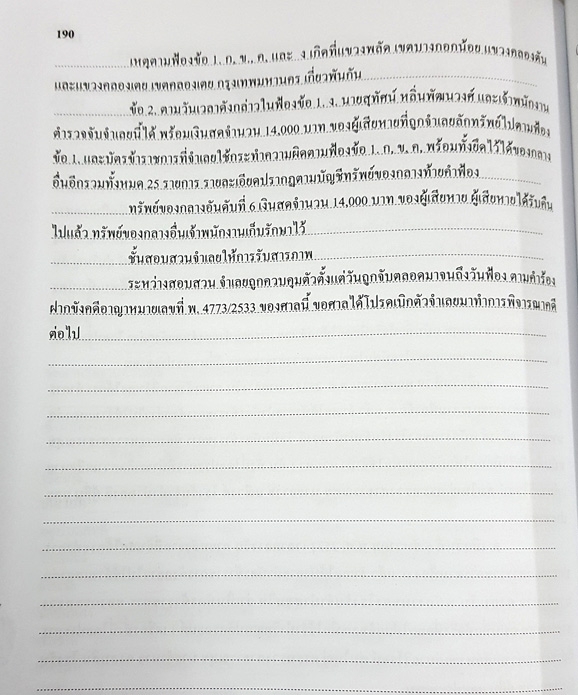 190
เหตุตามฟ้องข้อ 1. ก, ข., ค, และ ง เกิดที่แขวงพลัด เขตบางกอกน้อย แขวงคลองตัน
และแขวงคลองเตย เขตคลองเตย กรุงเทพมหานคร เกี่ยวพันกัน
ข้อ 2. ตามวันเวลาดังกล่าวในฟ้องข้อ 1. ง. นายสุทัศน์ หลิ่นพัฒนวงศ์ และเจ้าพนักงาน
ตำรวจจับจำเลยนี้ได้ พร้อมเงินสดจำนวน 14,000 บาท ของผู้เสียหายที่ถูกจำเลยลักทรัพย์ไปตามฟ้อง
ข้อ 1. และบัตรข้าราชการที่จำเลยใช้กระทำความผิดตามฟ้องข้อ 1. ก, ข, ค, พร้อมทั้งยึดไว้ได้ของกลาง
อื่นอีกรวมทั้งหมด 25 รายการ รายละเอียดปรากฏตามบัญชีทรัพย์ของกลางท้ายคำฟ้อง
ทรัพย์ของกลางอันดับที่ 6 เงินสดจำนวน 14,000 บาท ของผู้เสียหาย ผู้เสียหายได้รับคืน
ไปแล้ว ทรัพย์ของกลางอื่นเจ้าพนักงานเก็บรักษาไว้
ชั้นสอบสวนจำเลยให้การรับสารภาพ
ระหว่างสอบสวน จำเลยถูกควบคุมตัวตั้งแต่วันถูกจับตลอดมาจนถึงวันฟ้อง ตามคำร้อง
ฝากขังคดีอาญาหมายเลขที่ พ. 4773/2533 ของศาลนี้ ขอศาลได้โปรดเบิกตัวจำเลยมาทำการพิจารณาคดี
ต่อไป